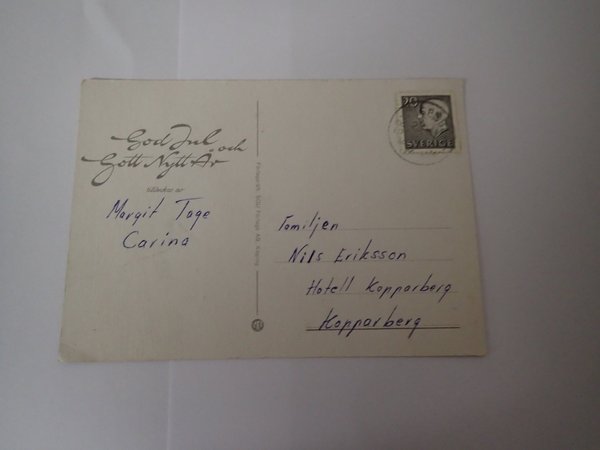 God Jul och
Gott Nytt År
tillönskas av
Margit Tage
Carina
20
SVERIGE
Familjen
Nils Eriksson
Hotell Kopparberg
Kopparberg